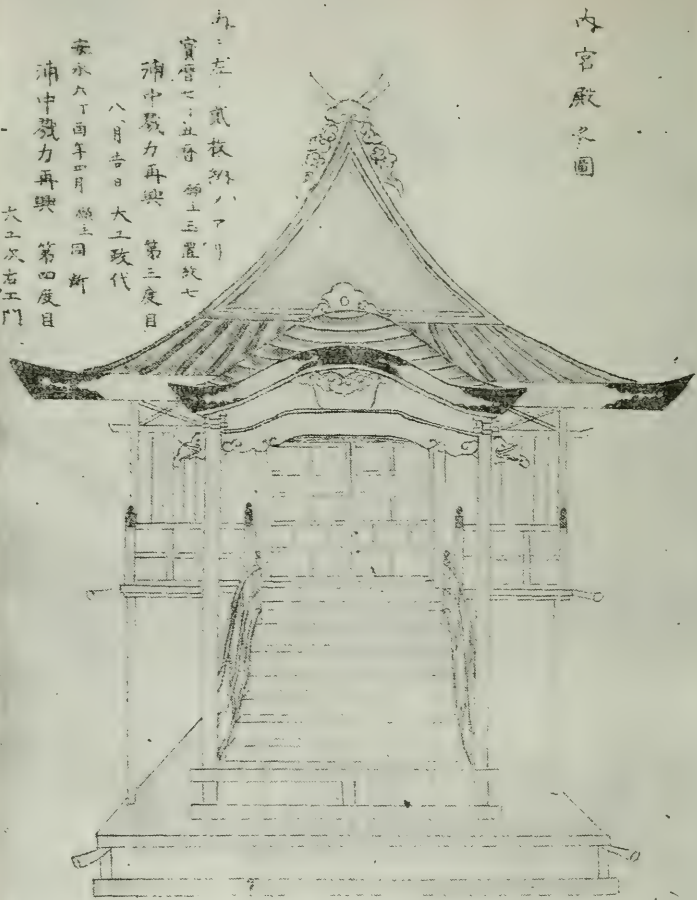 内宮殿之圖
左 貳枚 ハアリ
寶暦七 丑暦 願主三置 七
浦中戮力再興 第三度目
八月吉日 大工政代
安永六丁酉年四月 願主同断
浦中戮力再興 第四度目
大工次右エ門